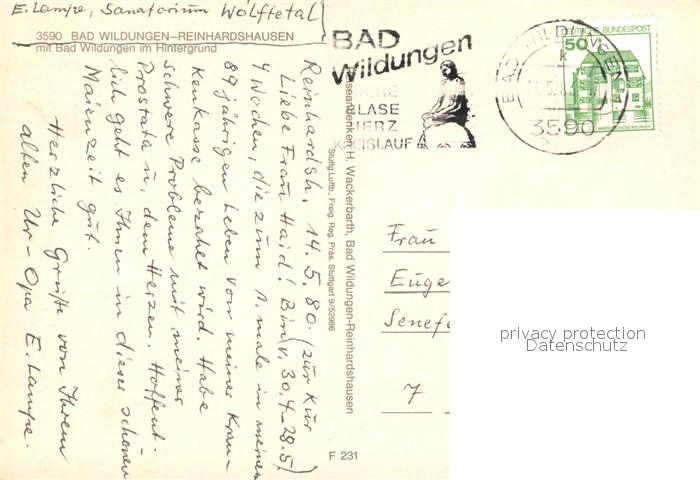 E. Lampe, Sanatorium Wölftetal
3590 BAD WILDUNGEN–REINHARDSHAUSEN
mit Bad Wildungen im Hintergrund
Reinhardsh. 14.5.80. (zur Kur
Liebe Frau Haid! Bin v. 30.4-28.5)
4 Wochen, die zum 1. male in meinem
89 jährigen Leben von meiner Kran-
kenkasse bezahlt wird. Habe
schwere Probleme mit meiner
Prostata u. dem Herzen. Hoffent-
lich geht es Ihnen in dieser schönen
Maienzeit gut.
Herzliche Grüße von Ihrem
alten Ur-Opa E. Lampe.
BAD
Wildungen
BLASE
HERZ
KREISLAUF
BAD WILDUNGEN
3590
DEUTSCHE BUNDESPOST
50
H. Wackerbarth, Bad Wildungen-Reinhardshausen
Stuttg. Luftb., Freig. Reg. Präs. Stuttgart 9/52986
F 231
Frau
Euge
Senefe
7
privacy protection
Datenschutz